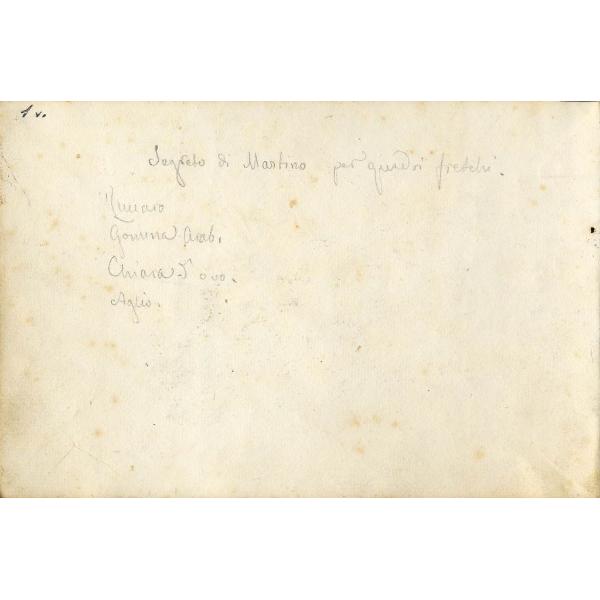 1 v.
Segreto di Martino per quadri freschi.
Gomma Arab.
Chiara d'ovo.
Aglio.